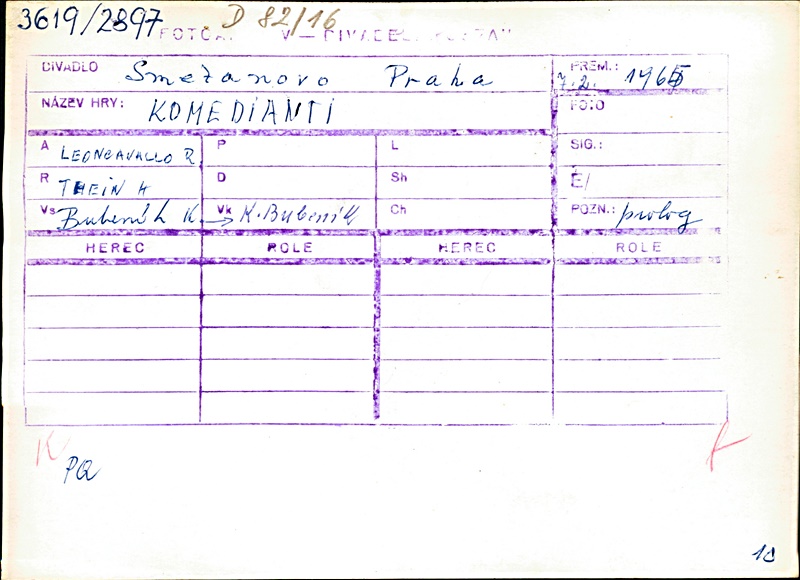 3619/2897 D 82/16
DIVADLO Smetanovo Praha PREM.: 7.2. 1965
NÁZEV HRY: KOMEDIANTI FOTO
A LEONCAVALLO R. P L SIG.:
R THEIN H D Sh Č/
Vs Bubeník K. Vk → K. Bubeník Ch POZN.: prolog
HEREC ROLE HEREC ROLE
K
PQ
10